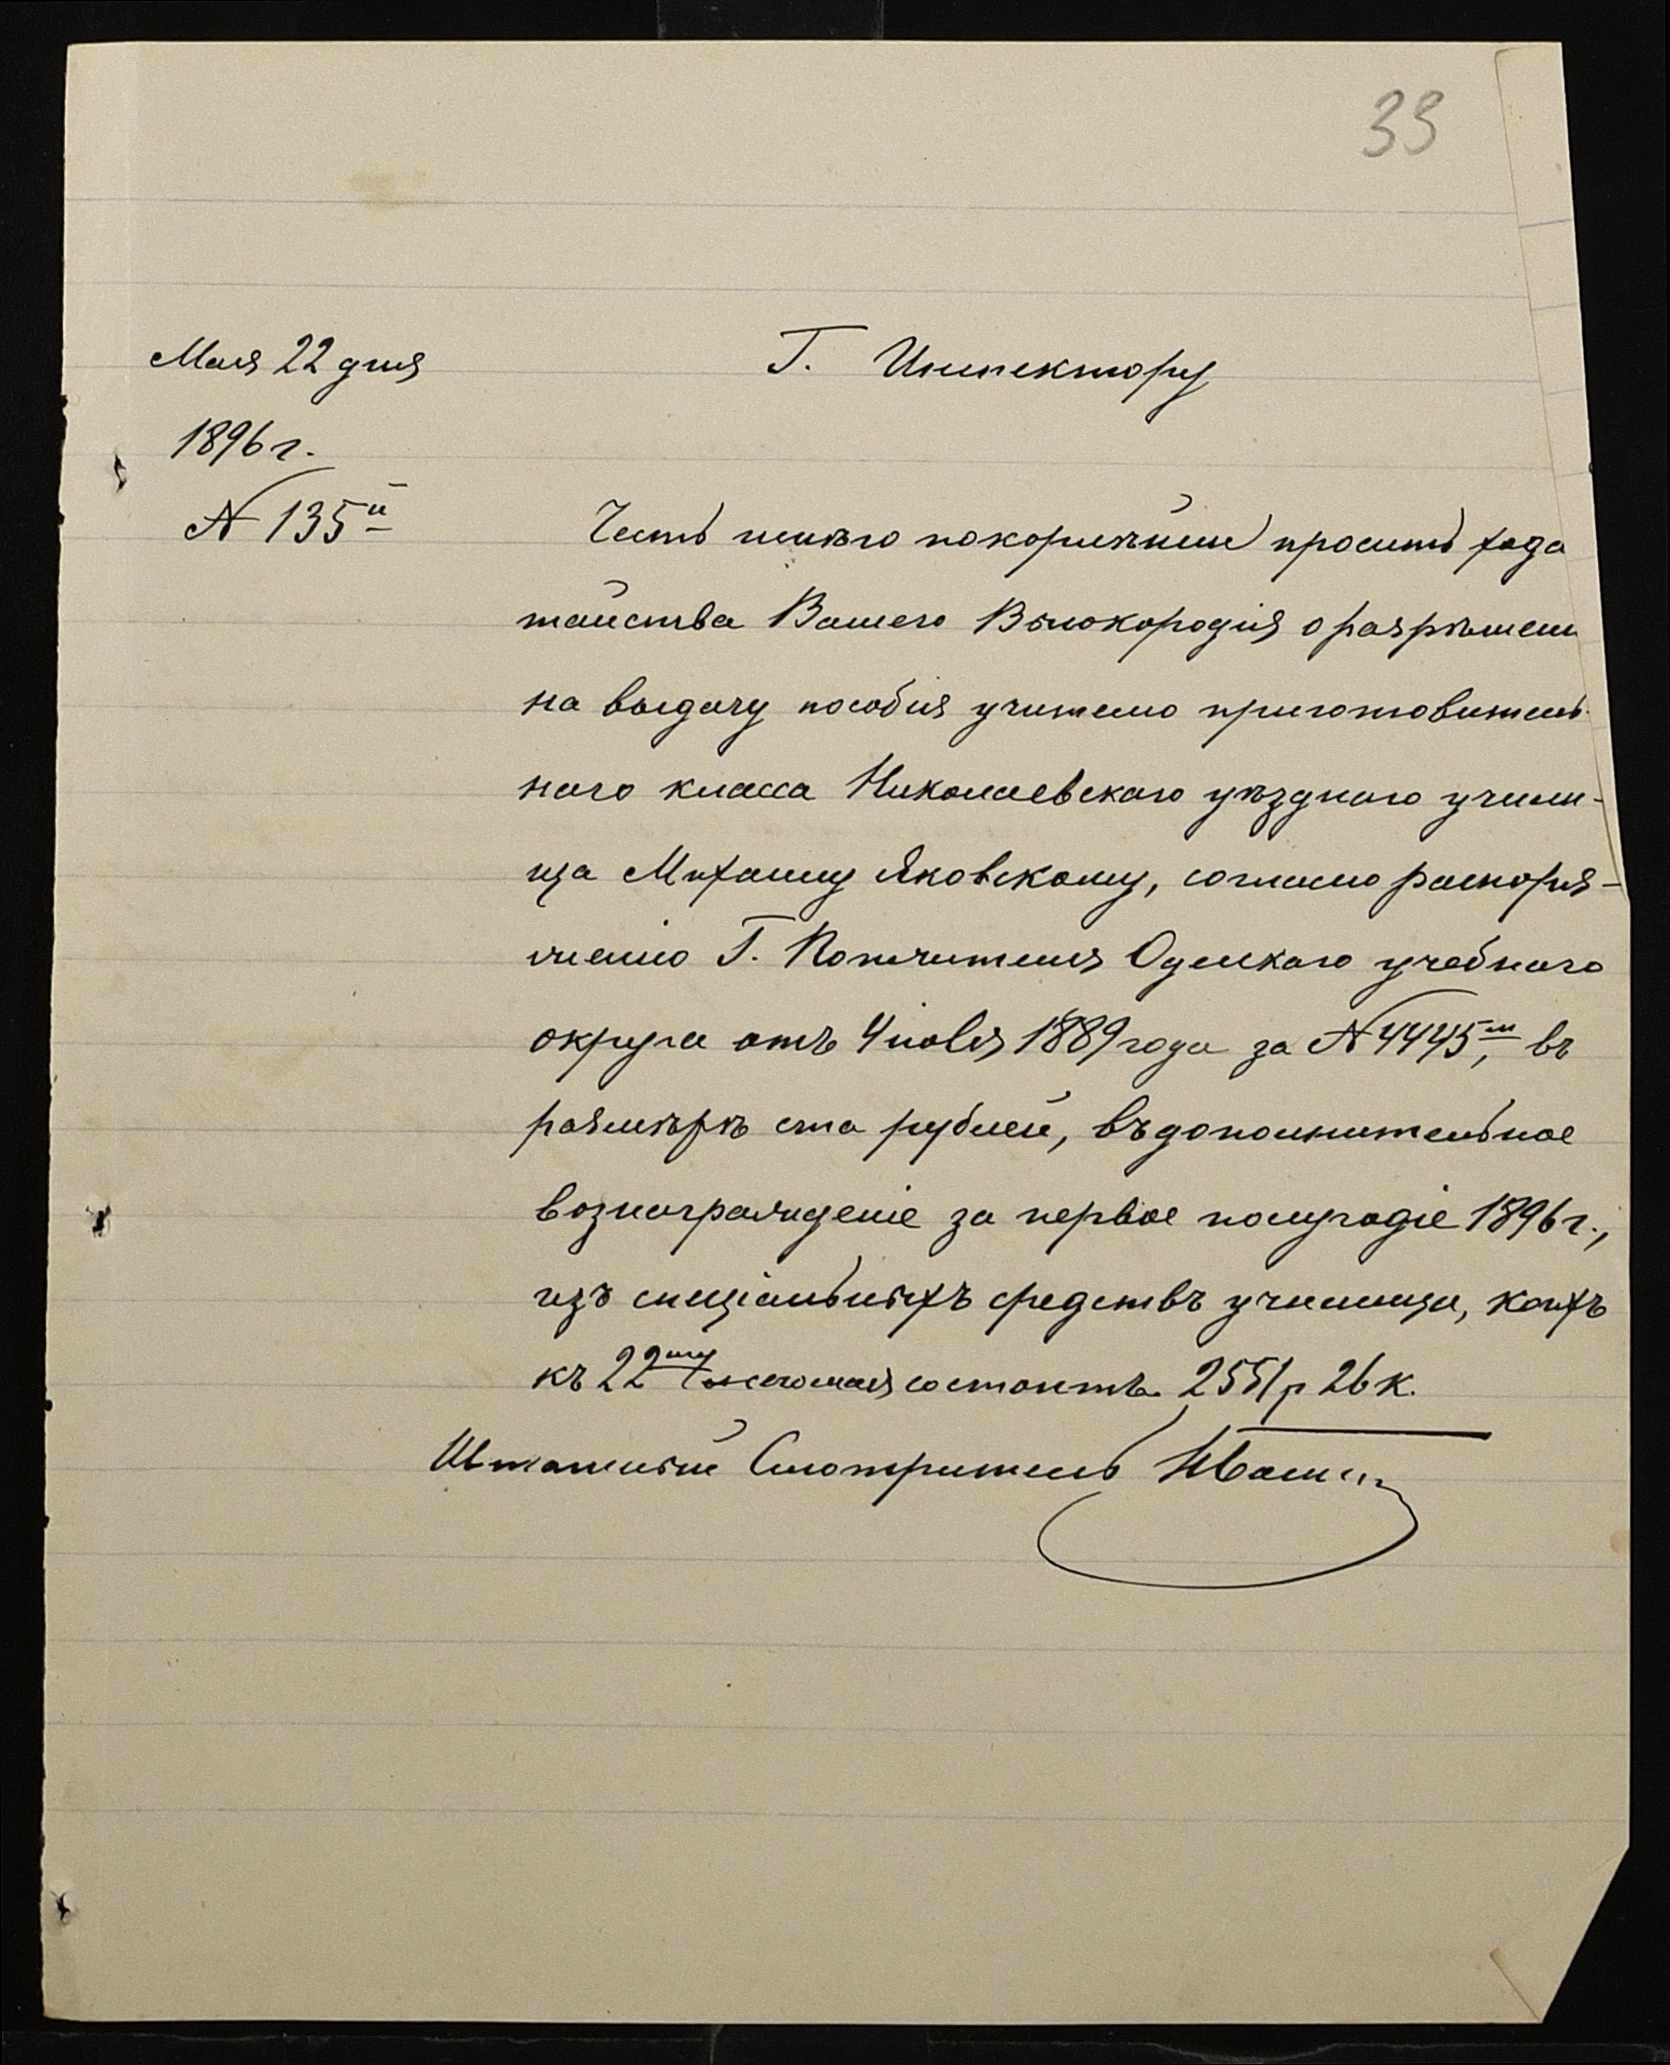 33
Мая 22 дня
1896 г.
№ 135й
Г. Инспектору
Честь имѣю покорнѣйше просить хода
тайства Вашего Высокородія о разрѣшени
на выдачу пособія учителю приготовитель-
наго класса Николаевскаго уѣзднаго учили-
ща Михаилу Яковскому, согласно распоря-
женію Г. Попечителя Одесскаго учебнаго
округа отъ 4 іюля 1889 года за № 4445м, въ
размѣрѣ ста рублей, въ дополнительное
вознагражденіе за первое полугодіе 1896 г.,
изъ спеціальныхъ средствъ училища, коихъ
къ 22му сего мая состоитъ 2551 р 26 к.
Штатный Смотритель